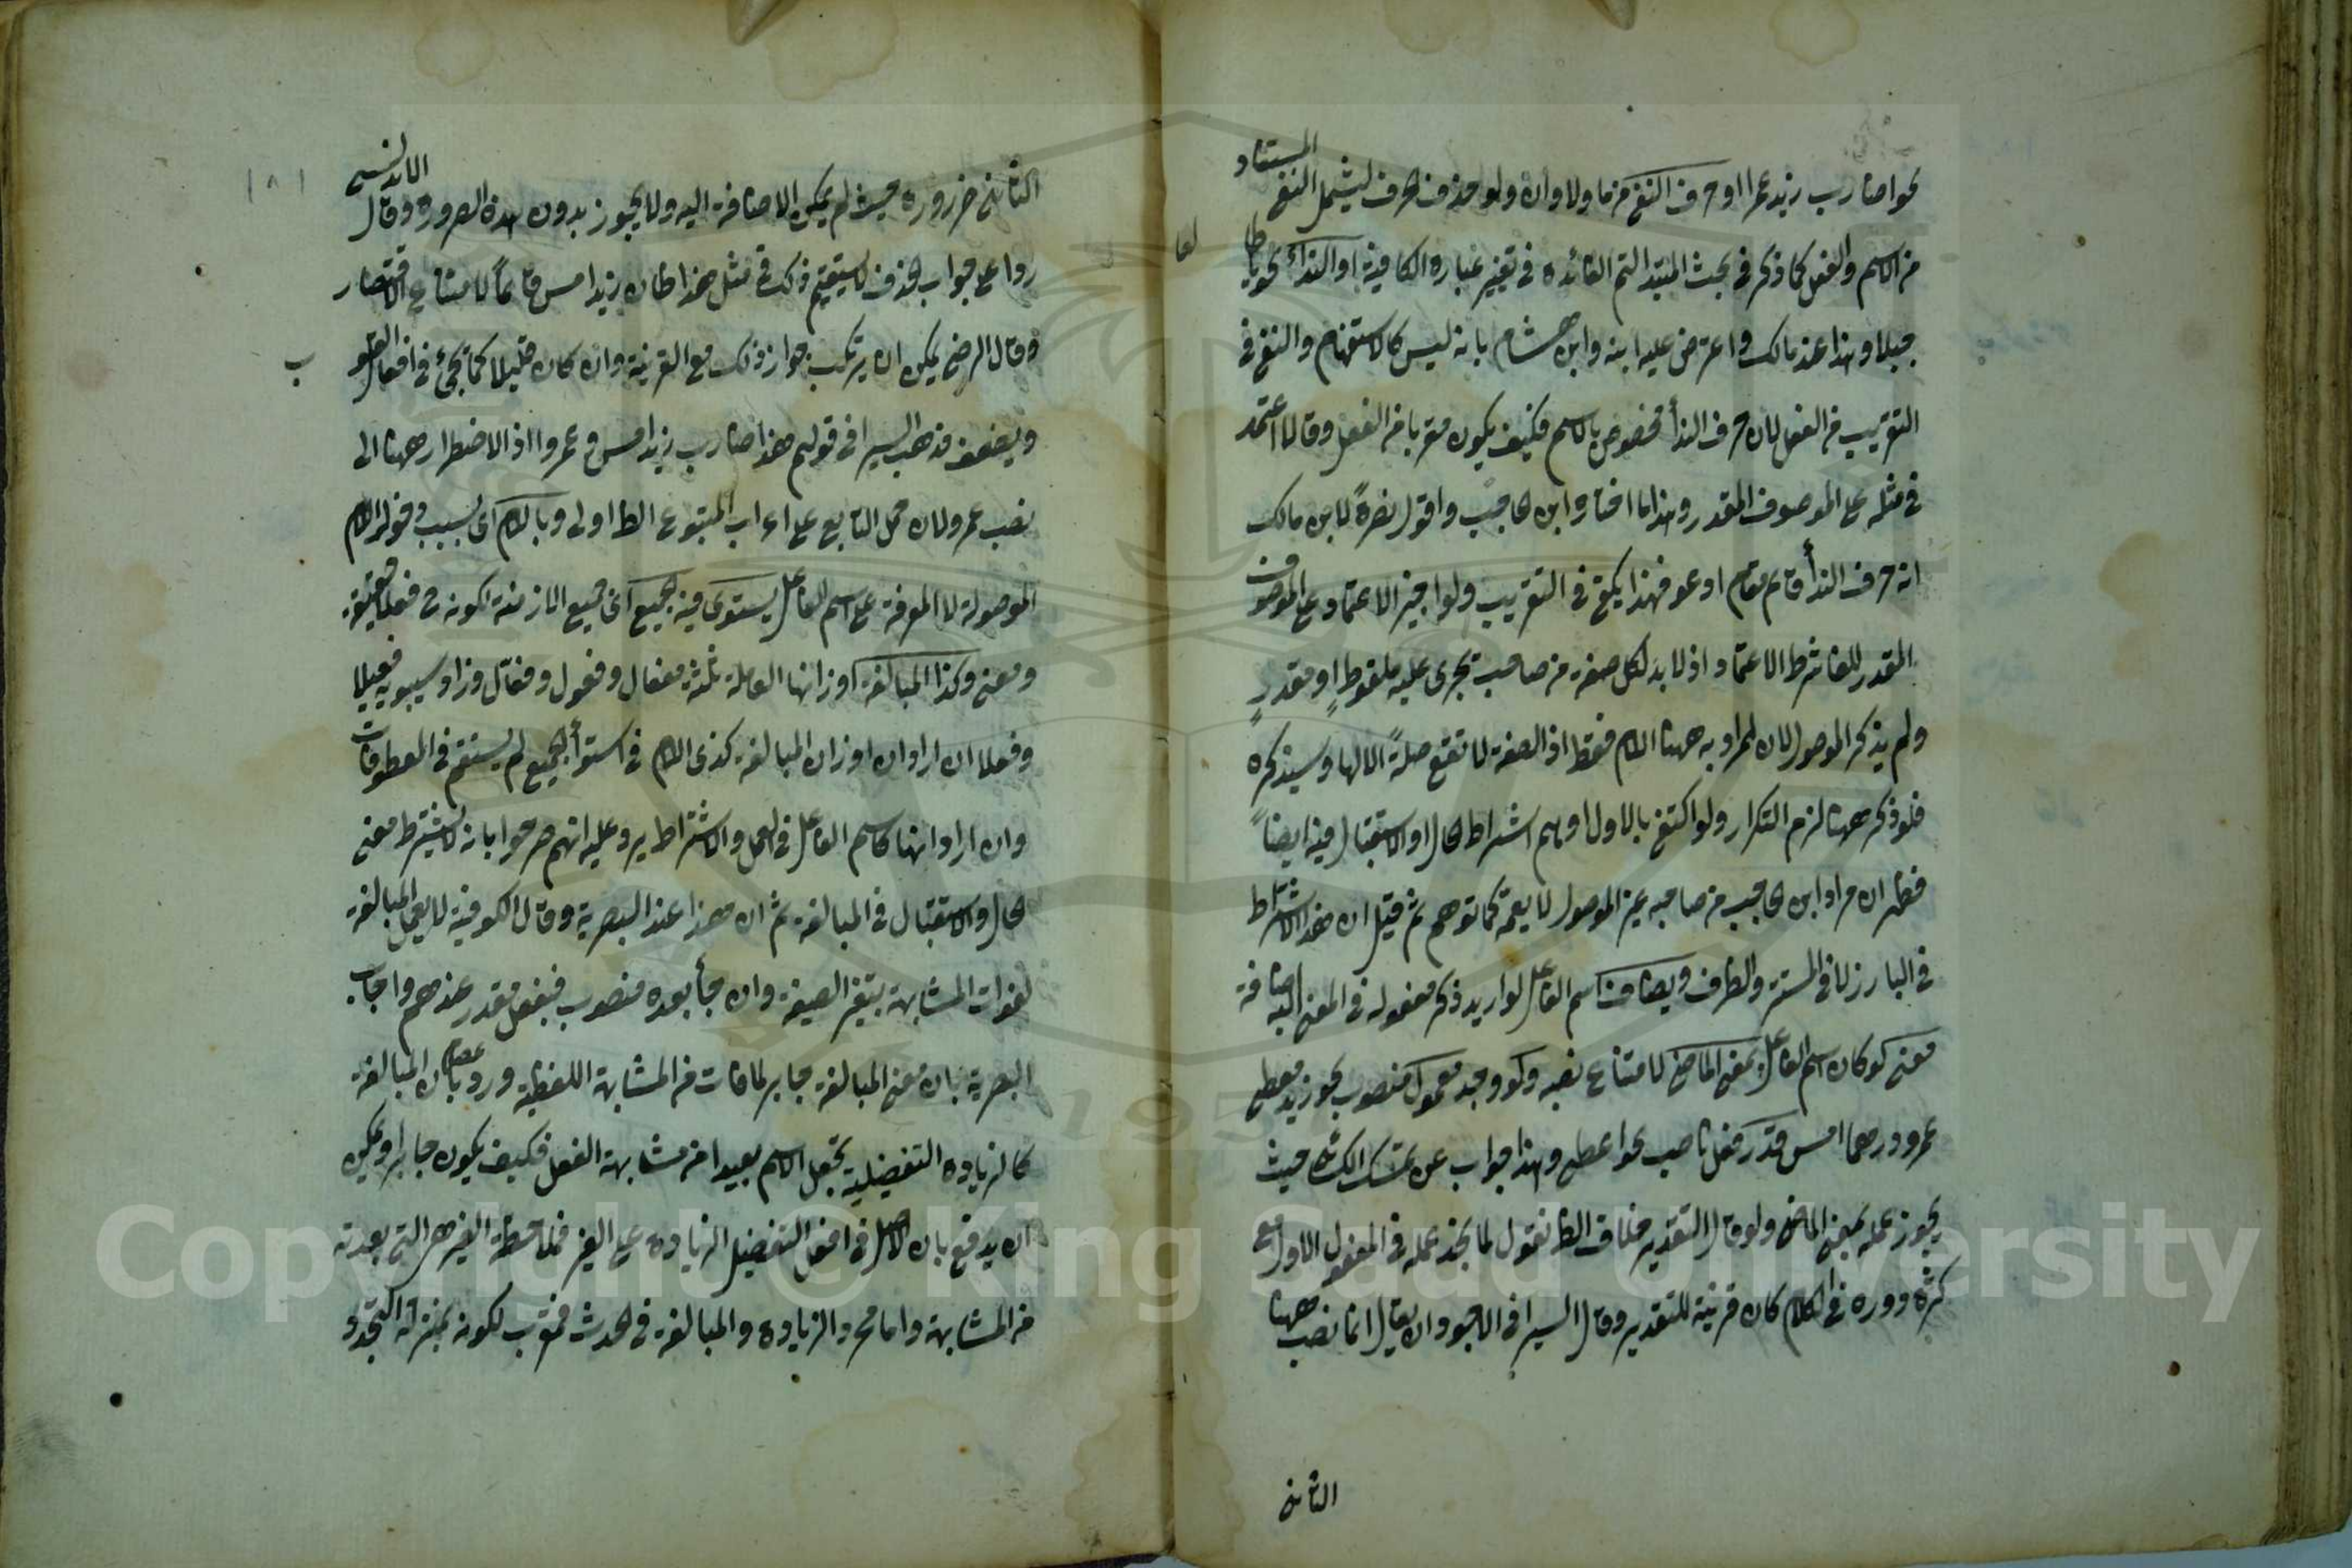 نحو اضارب زيد عمرا او حرف النفي من ما ولا وان ولو حذف حرف ليشمل النفي المستفاد
من الاسم والفعل كما ذكر في بحث المبتدا لتم الفائدة في تغيير عبارة الكافية او النداء نحو يا طالعا
جبلا وهذا عند مالك واعترض عليه ابنه وابن هشام بانه ليس كالاستفهام والنفي في
التقريب من الفعل لان حرف الندأ مخصوص بالاسم فكيف يكون مقربا من الفعل وقالا اعتمد
في مثله على الموصوف المقدر وهذا ما اختاره ابن حاجب واقول نصرةً لابن مالك
انه حرف الندأ قائم مقام ادعو فهذا يكفي في التقريب ولو اجيز الاعتماد على الموصوف
المقدر للغا شرط الاعتماد اذ لا بد لكل صفة من صاحب تجرى عليه ملفوظٍ او مقدرٍ
ولم يذكر الموصول لان المراد به ههنا اللام فقط اذ الصفة لا تقع صلةً الا لها وسيذكره
فلو ذكر ههنا لزم التكرار ولو اكتفى بالاول اوهم اشتراط الحال او الاستقبال فيه ايضاً
فظهر ان مراد ابن حاجب من صاحبه غير الموصول لا يعمه كما توهم ثم قيل ان هذا الاشتراط
في البارز لا في المستتر والظرف ويضاف اسم الفاعل لو اريد ذكر مفعوله في المعنى اليه اضافة
معنى لو كان اسم الفاعل بمعنى الماضي لامتناع نصبه ولو وجد معمول منصوب نحو زيد معطى
عمرو درهما امس قدر فعل ناصب نحو اعطى وهذا جواب عن تمسك الكسائى حيث
يجوز عمله بمعنى الماضى ولو قال التقدير خلاف الظا نقول لما لم نجد عمله في المفعول الاول مع
كثرة دوره في الكلام كان قرينة للتقدير وقال السيرافى الاجود ان يقال انما نصب ههنا
الثانى
الثانى ضرورة حيث لم يكن الاضافة اليه ولا يجوز بدون هذه الضرورة وقال الاندلسى
ردا على جواب الحذف لا يستقيم ذلك في مثل هذا ظان زيد امس قائماً لامتناع الاقتصار
وقال الرضى يمكن ان يرتكب جواز ذلك مع القرينة وان كان قليلا كما يجئ في افعال القلوب
ويضعف مذهب السيرافى قولهم هذا ضارب زيد امس وعمروا اذ لا اضطرار ههنا الى
نصب عمرو لان حمل التابع على اعراب المتبوع الظا اولى وباللام اى بسبب دخول اللام
الموصولة لا المعرفة على اسم الفاعل يستوى فيه الجميع اى جميع الازمنة لكونه ح فعلا حقيقة
ومعنى وكذا المبالغة اوزانها العاملة ثلثة مفعال وفعول وفعّال وزاد سيبويه فعيلا
وفعلا ان ارادان اوزان المبالغة كذى اللام في استوأ الجميع لم يستقم في المعطوفات
وان ارادانها كاسم الفاعل في العمل والاشتراط يرد عليه انهم صرحوا بانه لا يشترط معنى
الحال والاستقبال في المبالغة ثم ان هذا عند البصرية وقال الكوفية لا يعمل المبالغة
لفوات المشابهة بتغير الصيغة وان جأ بعده منصوب فبفعل مقدر عندهم واجاب
البصرية بان معنى المبالغة جابر لما فات من المشابهة اللفظية ورد عصام بان المبالغة
كالزيادة التفضيلية تجعل الاسم بعيدا من مشابهة الفعل فكيف يكون جابرا ويمكن
ان يدفع بان الاصل في افعل التفضيل الزيادة على الغير فملاحظة الغير هى التى بعدته
من المشابهة واما مجرد الزيادة والمبالغة في الحدث فمقرب لكونه بمنزلة التجدد
١٨١